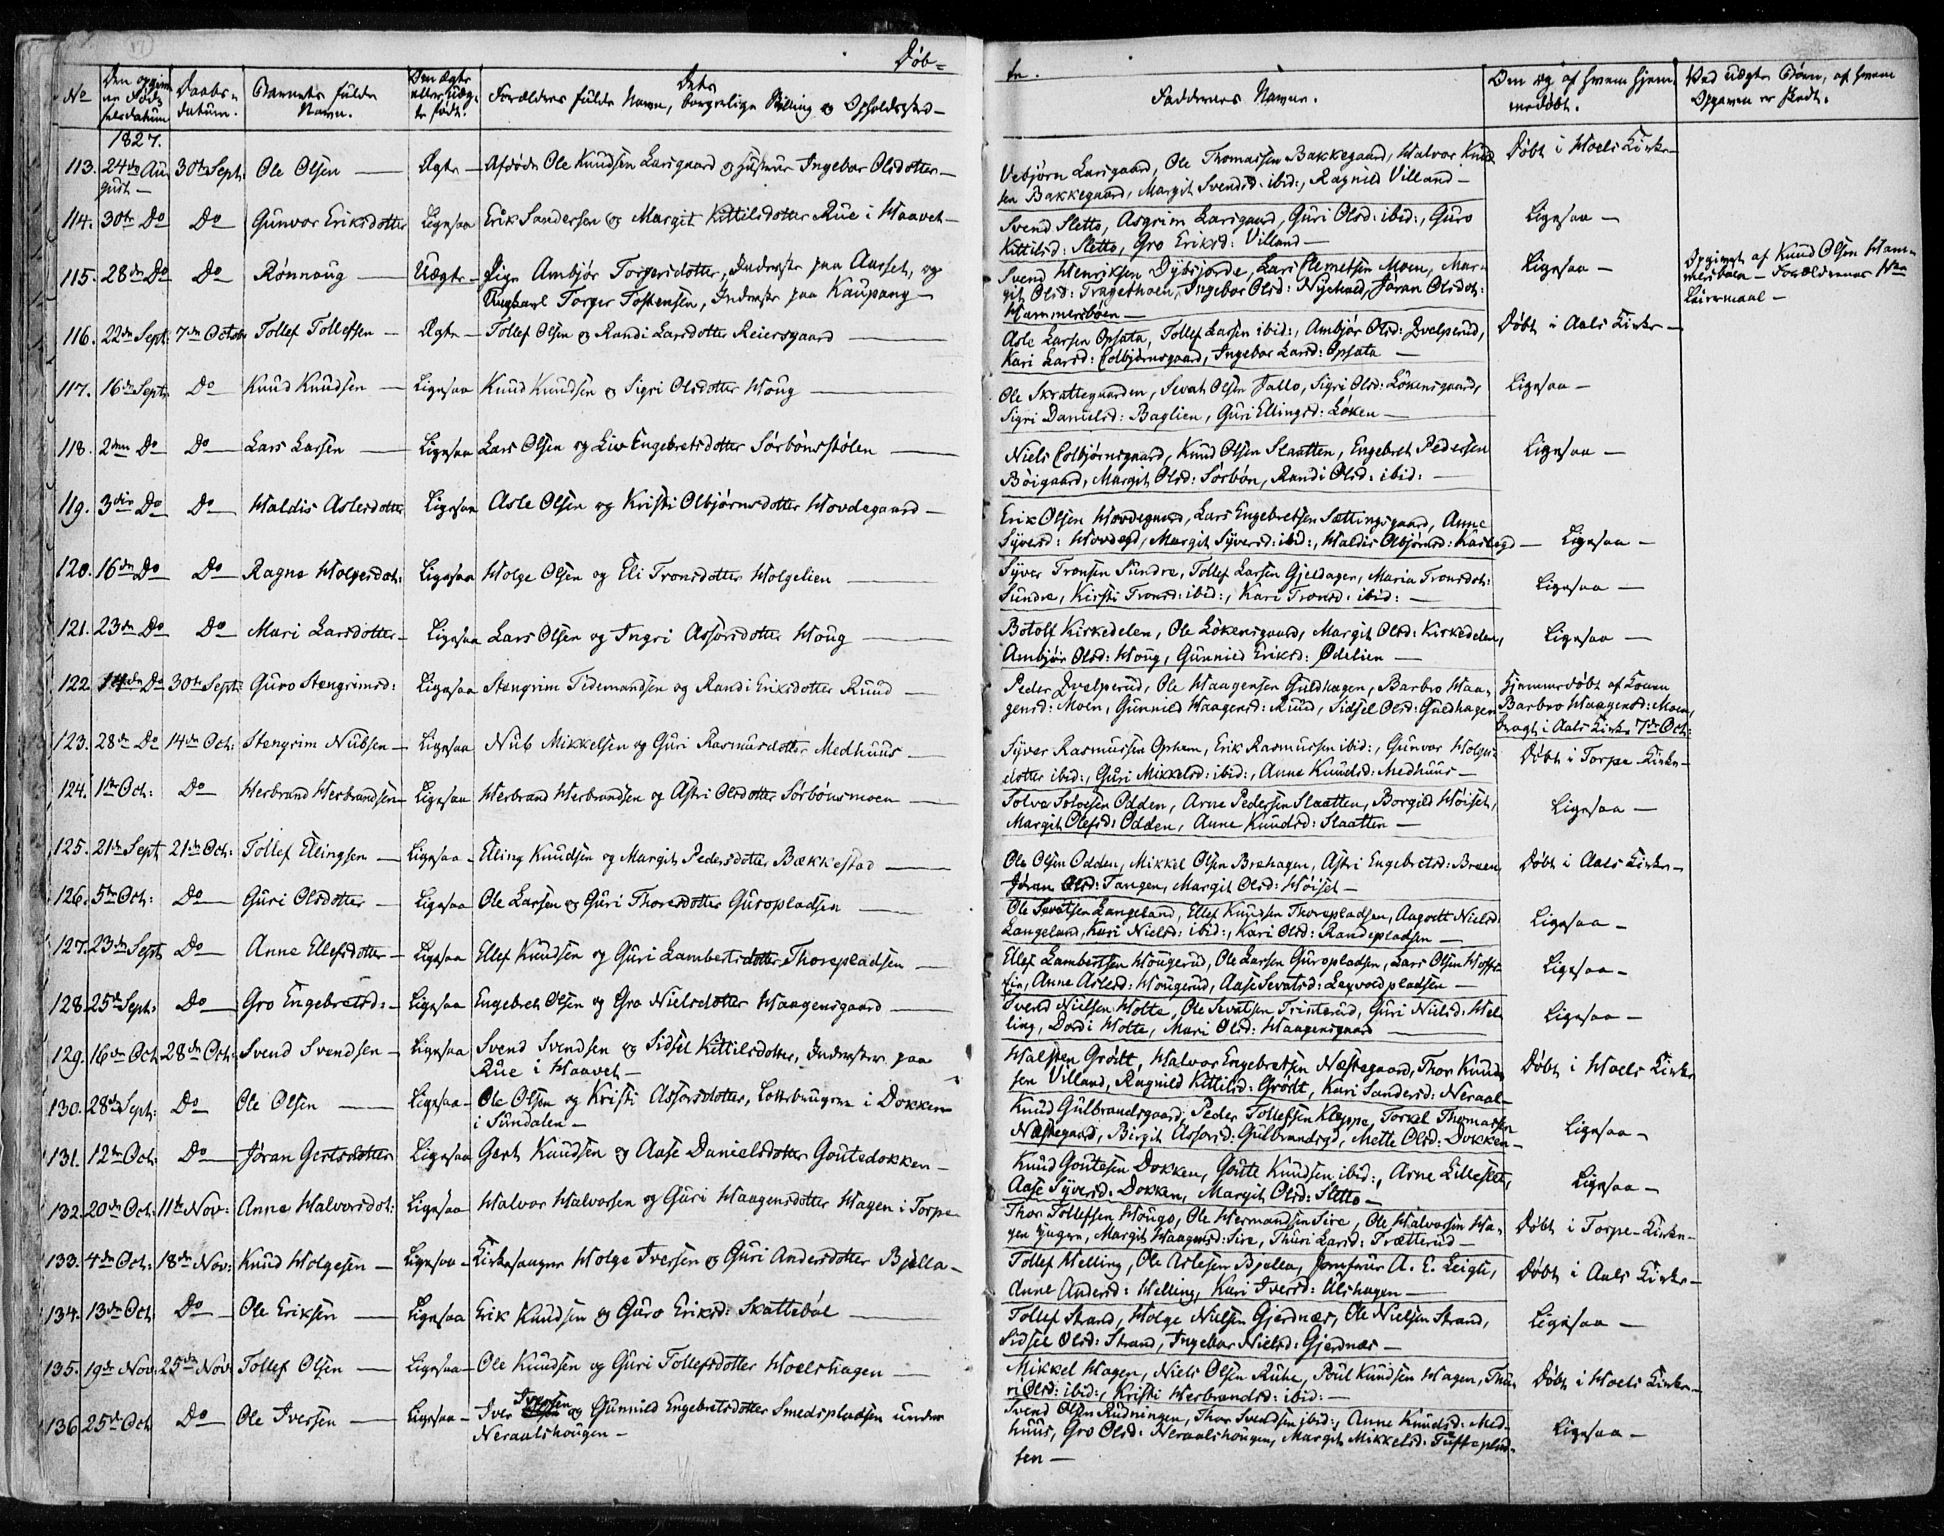 Døb=
No
Den opgivne Fødselsdatum
Daabsdatum.
Barnets fulde Navn.
Om Ægte eller Uægte født.
Forældres fulde Navn, Dets borgerlige Stilling og Opholdssted
1827.
113. 24de August Ole Olsen — Ægte — Afdøde Ole Knudsen Larsgaard og Hustrue Ingebor Olsdotter —
30te Sept:
114. 30te Do Do Gunvor Eriksdotter Ligesaa Erik Sandersen og Margit Kittilsdotter Rue i Haavet —
115. 28de Do Do Rønnoug — Uægte — Pige Ambjør Torgersdotter, Inderste paa Aarset, og
Ungkarl Torger Tostensen, Inderste paa Kaupang —
116. 22de Sept: 7de Octob: Tollef Tollefsen — Ægte — Tollef Olsen og Randi Larsdotter Reiersgaard —
117. 16de Sept: Do Knud Knudsen — Ligesaa Knud Knudsen og Sigri Olsdotter Houg —
118. 2den Do Do Lars Larsen — Ligesaa Lars Olsen og Liv Engebretsdotter Sørbønsstølen —
119. 3die Do Do Haldis Aslesdotter Ligesaa Asle Olsen og Kristi Olbjørnsdotter Hovdegaard —
120. 16de Do Do Ragne Holgesdot: Ligesaa Holge Olsen og Eli Tronsdotter Holgelien —
121. 23de Do Do Mari Larsdotter — Ligesaa Lars Olsen og Ingri Assorsdotter Houg —
122. 14de Do 30te Sept: Guro Stengrimsd: Ligesaa Stengrim Tidemandsen og Randi Eriksdotter Ruud —
123. 28de Do 14de Oct: Stengrim Nubsen — Ligesaa Nub Mikkelsen og Guri Rasmusdotter Medhuus —
124. 1ste Oct: Do Herbrand Herbrandsen Ligesaa Herbrand Herbrandsen og Astri Olsdotter Sørbønsmoen —
125. 21de Sept 21de Oct: Tollef Ellingsen — Ligesaa — Elling Knudsen og Margit Pedersdotter Bækkestad —
126. 5te Oct: Do Guri Olsdotter — Ligesaa Ole Larsen og Guri Thoresdotter Guropladsen —
127. 23de Sept Do Anne Ellefsdotter — Ligesaa Ellef Knudsen og Guri Lambertsdotter Thorepladsen —
128. 25de Sept: Do Gro Engebretsd: — Ligesaa Engebret Olsen og Gro Nielsdotter Haagensgaard —
129. 16de Oct 28de Oct: Svend Svendsen — Ligesaa Svend Svendsen og Sidsel Kittilsdotter, Inderster paa
Rue i Haavet —
130. 28de Sept: Do Ole Olsen — Ligesaa — Ole Olsen og Kristi Assorsdotter, Lottbrugere i Dokken
i Sundalen —
131. 12te Oct: Do Jøran Gertsdotter Ligesaa Gert Knudsen og Aase Danielsdotter Goutedokken —
132. 20de Oct: 11te Nov: Anne Halvorsdot: Ligesaa Halvor Halvorsen og Guri Haagensdotter Hagen i Torpe
133. 4de Oct: 18de Nov: Knud Holgesen — Ligesaa — Kirkesanger Holge Iversen og Guri Andersdotter Bjella —
134. 13de Oct Do Ole Eriksen — Ligesaa Erik Knudsen og Guro Eriksd: Skattebøl —
135. 19de Nov: 25de Nov: Tollef Olsen — Ligesaa — Ole Knudsen og Guri Tollefsdotter Hoelshagen —
136 25de Oct Do Ole Iversen — Ligesaa — Iver Iversen og Gunnild Engebretsdotter Smedspladsen under
Neraalshougen —
te.
Faddernes Navne.
Om og af hvem hjemmedøbt.
Ved uægte Børn, af hvem Opgaven er skedt.
Vebjørn Larsgaard, Ole Thomassen Bakkegaard, Halvor Knud-
sen Bakkegaard, Margit Svendsd: ibid:, Ragnild Villand —
Døbt i Hoels Kirke —
Svend Sletto, Asgrim Larsgaard, Guri Olsd: ibid:, Guro
Kittilsd: Sletto, Gro Eriksd: Villand —
Ligesaa —
Svend Henriksen Dybsjorde, Lars Clemetsen Moen, Mar-
git Olsd: Tragethoen, Ingebor Olsd: Nyhaud, Jøran Olsdot:
Hammersbøen —
Ligesaa —
Opgivet af Knud Olsen Ham-
mersbøen — Forældrenes 1ste
Leiermaal —
Asle Larsen Opsata, Tollef Larsen ibid:, Ambjør Olsd: Qvelperud,
Kari Larsd: Colbjørnsgaard, Ingebor Larsd: Opsata —
Døbt i Aals Kirke —
Ole Skrattegaarden, Sevat Olsen Jallo, Sigri Olsd: Løkensgaard,
Sigri Danielsd: Baglien, Guri Ellingsd: Løken —
Ligesaa —
Niels Colbjørnsgaard, Knud Olsen Slaatten, Engebret Pedersen
Bøigaard, Margit Olsd: Sørbøn, Randi Olsd: ibid: —
Ligesaa —
Erik Olsen Hovdegaard, Lars Engebretsen Sættingsgaard, Anne
Syversd: Hovdegd, Margit Syversd: ibid:, Haldis Olbjørnsd: Kaslegd —
Ligesaa —
Syver Tronsen Sundre, Tollef Larsen Gjeldagen, Maria Tronsdot:
Sundre, Kirsti Tronsd: ibid:, Kari Tronsd: ibid: —
Ligesaa —
Botolf Kirkedelen, Ole Løkensgaard, Margit Olsd: Kirkedelen,
Ambjør Olsd: Houg, Gunnild Eriksd: Ødelien —
Ligesaa —
Peder Qvelperud, Ole Haagensen Guldhagen, Barbro Haa-
gensd: Moen, Gunnild Haagensd: Ruud, Sidsel Olsd: Guldhagen
Hjemmedøbt af Konen
Barbro Haagensd: Moen,
bragt i Aals Kirke 7de Oct:
Syver Rasmussen Ophem, Erik Rasmussen ibid:, Gunvor Holges-
dotter ibid:, Guri Mikkelsd: ibid:, Anne Knudsd: Medhuus —
Døbt i Torpe Kirke —
Solve Solvesen Odden, Arne Pedersen Slaatten, Borgild Høiset,
Margit Olefsd: Odden, Anne Knudsd: Slaatten —
Ligesaa —
Ole Olsen Odden, Mikkel Olsen Brehagen, Astri Engebretsd: Breen,
Jøran Olsd: Tangen, Margit Olsd: Høiset —
Døbt i Aals Kirke —
Ole Sevatsen Langeland, Ellef Knudsen Thorepladsen, Aagodt Nielsd:
Langeland, Kari Nielsd: ibid:, Kari Olsd: Randepladsen —
Ligesaa —
Ellef Lambertsen Hougerud, Ole Larsen Guropladsen, Lars Olsen
Anne Aslesd: Hougerud, Aase Sevatsd: Leqvoldpladsen —
Ligesaa —
Svend Nielsen Holte, Ole Sevatsen Trinterud, Guri Nielsd: Hel-
ling, Dordi Holte, Mari Olsd: Haagensgaard —
Ligesaa —
Halsten Grødt, Halvor Engebretsen Næstegaard, Thor Knud-
sen Villand, Ragnild Kittilsd: Grødt, Kari Sandersd: Neraal —
Døbt i Hoels Kirke
Knud Gulbrandsgaard, Peder Tollefsen Kleppe, Torkel Thomassen
Næstegaard, Birgit Assorsd: Gulbrandsgd, Mette Olsd: Dokken —
Ligesaa —
Knud Goutesen Dokken, Goute Knudsen ibid:, Arne Lilleslet,
Aase Syversd: Dokken, Margit Olsd: Sletto —
Ligesaa —
Thor Tollefsen Hougo, Ole Hermandsen Sire, Ole Halvorsen Ha-
gen yngre, Margit Haagensd: Sire, Thuri Larsd: Trætterud —
Døbt i Torpe-Kirke —
Tollef Helling, Ole Aslesen Bjella, Jomfrue A. E. Leigh,
Anne Andersd: Helling, Kari Iversd: Ulshagen —
Døbt i Aals Kirke —
Tollef Strand, Holge Nielsen Gjerdnæs, Ole Nielsen Strand,
Sidsel Olsd: Strand, Ingebor Nielsd: Gjerdnæs —
Ligesaa —
Mikkel Hagen, Niels Olsen Ruhe, Poul Knudsen Hagen, Thu-
ri Olsd: ibid:, Kristi Herbrandsd: ibid: —
Døbt i Hoels Kirke —
Svend Olsen Rudningen, Thor Svendsen ibid:, Anne Knudsd: Med-
huus, Gro Olsd: Neraalshougen, Margit Mikkelsd: Tufteplad-
sen —
Ligesaa —